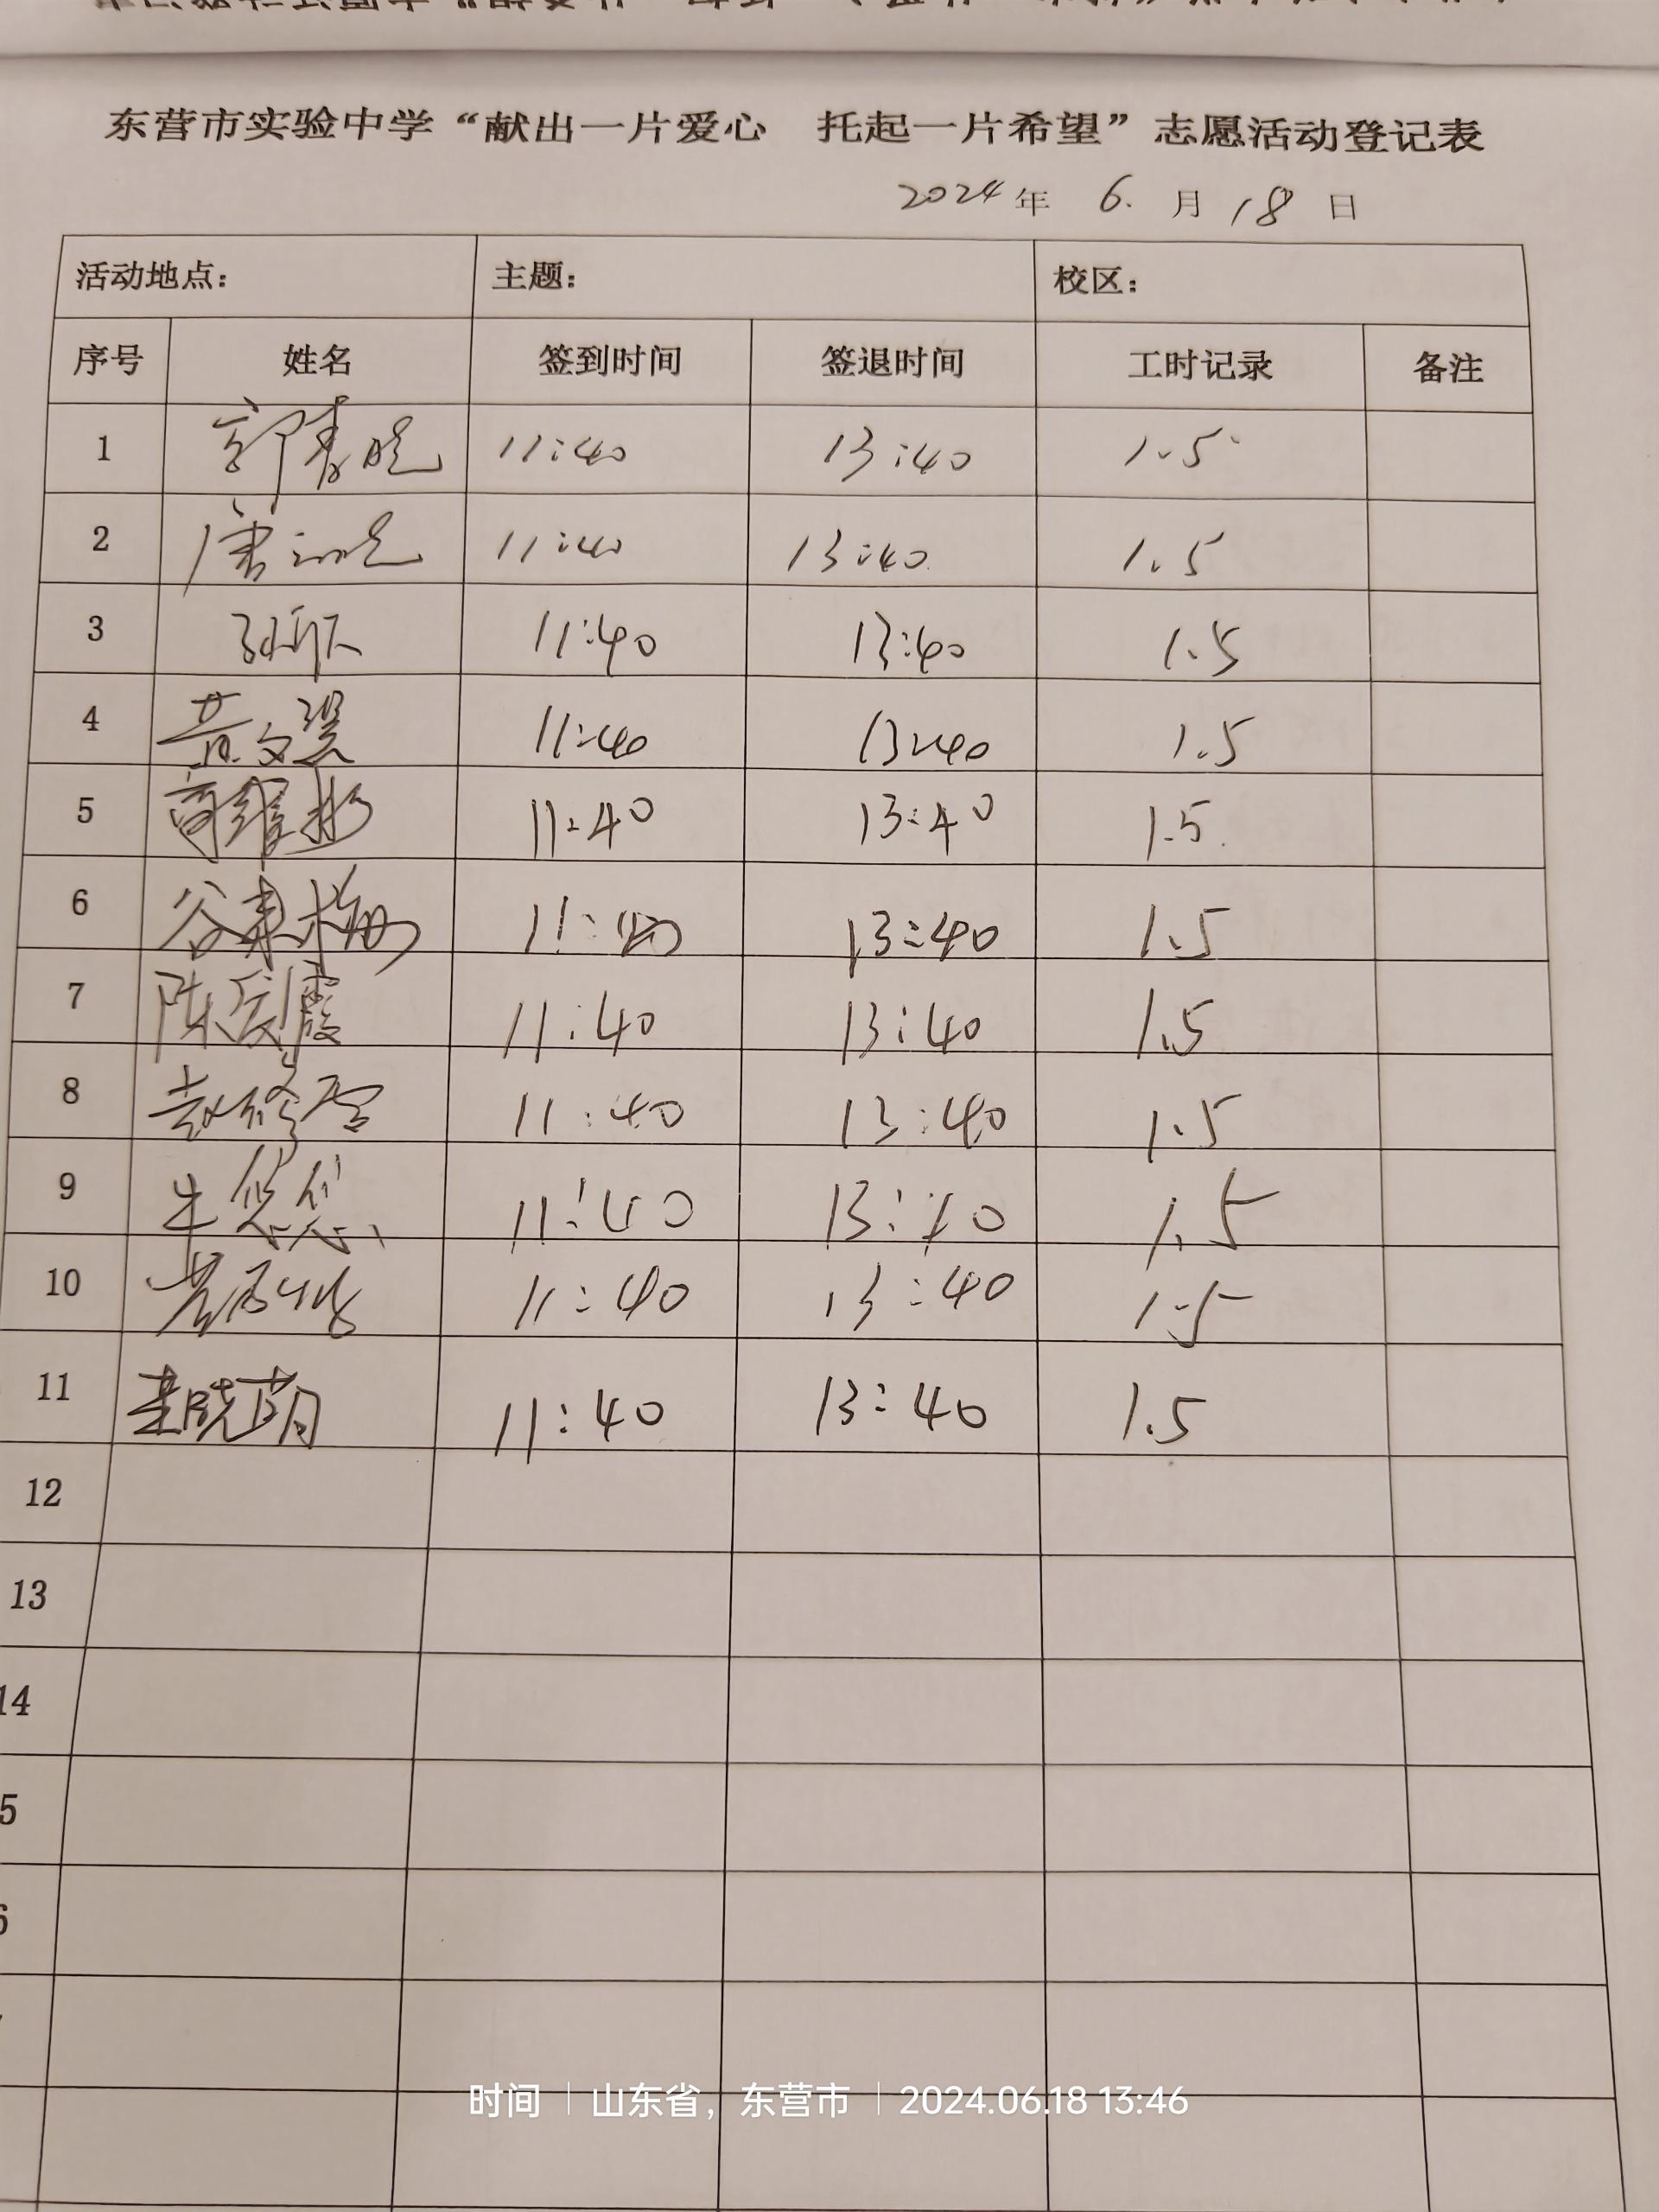 东营市实验中学“献出一片爱心 托起一片希望”志愿活动登记表
2024年 6.月 18日
活动地点： 主题： 校区：
序号 姓名 签到时间 签退时间 工时记录 备注
1 11:40 13:40 1.5
2 11:40 13:40 1.5
3 11:40 13:40 1.5
4 黄文瑛 11:40 13:40 1.5
5 11:40 13:40 1.5
6 谷寿梅 11:40 13:40 1.5
7 陈友霞 11:40 13:40 1.5
8 11:40 13:40 1.5
9 牛悠悠 11:40 13:40 1.5
10 11:40 13:40 1.5
11 晓萌 11:40 13:40 1.5
12
13
14
5
6
时间 | 山东省，东营市 | 2024.06.18 13:46